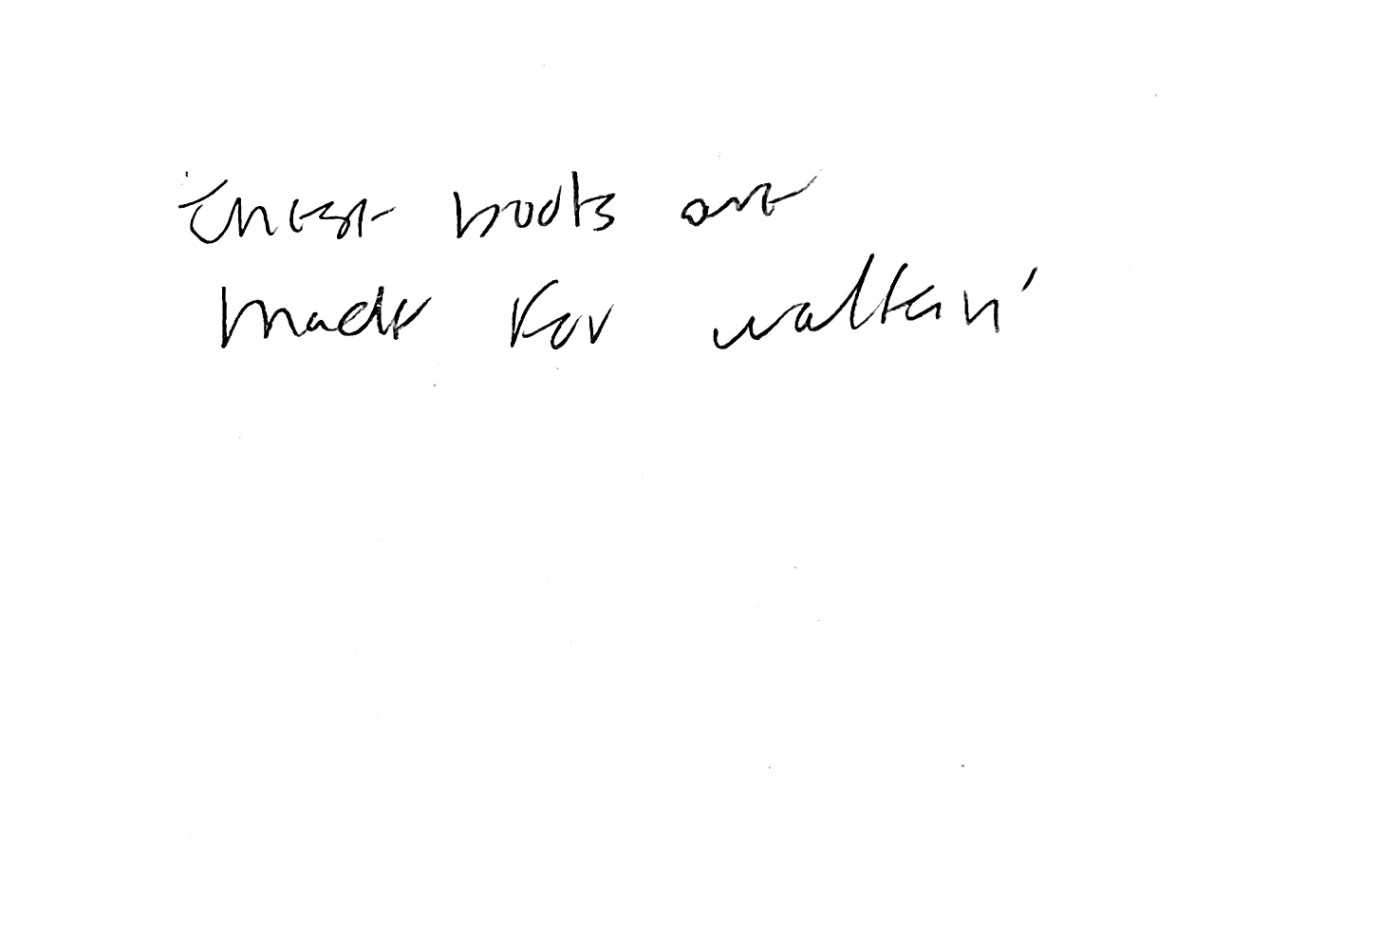 these boots are
made for walkin'